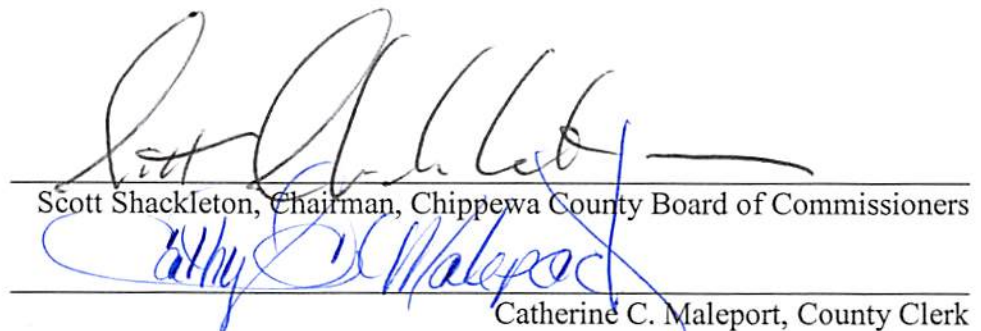 Scott Shackleton
Scott Shackleton, Chairman, Chippewa County Board of Commissioners
Cathy C Maleport
Catherine C. Maleport, County Clerk